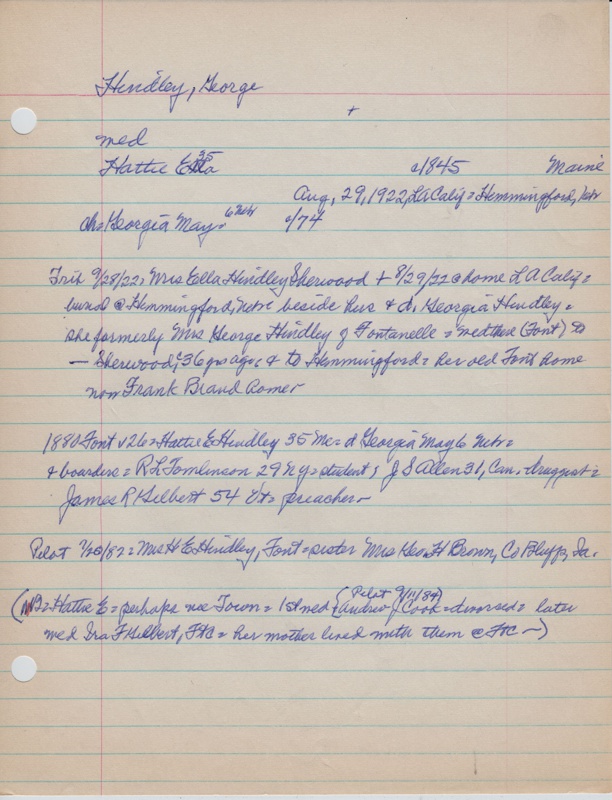 Hindley, George
+
med
Hattie Ella 35 c/1845 Maine
Aug, 29, 1922, LA Calif = Hemmingford, Nebr
ch = Georgia May = 6 Nebr c/74
Trib 9/28/22: Mrs Ella Hindley Sherwood + 8/29/22 @ home LA Calif =
buried @ Hemmingford, Nebr beside hus & d, Georgia Hindley =
she formerly Mrs George Hindley of Fontanelle = med there (Font) to
— Sherwood, 36 yrs ago, & to Hemmingford = her old Font home
now Frank Brand home
1880 Font v26 = Hattie E Hindley 35 Me = d Georgia May 6 Nebr =
& boarders = R L Tomlinson 29 NY = student; J S Allen 31, Can. druggist =
James R Gilbert 54 Vt = preacher —
Pilot 7/20/82 = Mrs H E Hindley, Font = sister Mrs Geo. H Brown, Co Bluffs, Ia.
(NB = Hattie E = perhaps nee Town = 1st med { Pilot 9/11/84 } Andrew J Cook = divorsed = later
med Ira F Gilbert, FtC = her mother lived with them @ FtC —)